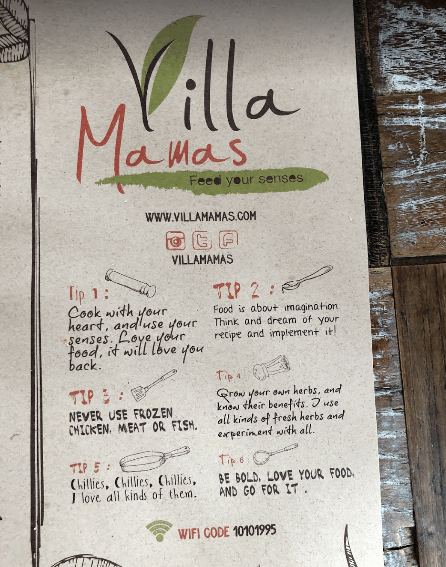 Villa
Mamas
Feed your senses
WWW.VILLAMAMAS.COM
VILLAMAMAS
Tip 1 :
Cook with your
heart, and use your
senses. Love your
food, it will love you
back.
TIP 2 :
Food is about imagination.
Think and dream of your
recipe and implement it!
TIP 3 :
NEVER USE FROZEN
CHICKEN, MEAT OR FISH.
Tip 4
Grow your own herbs, and
know their benefits. I use
all kinds of fresh herbs and
experiment with all.
TIP 5 :
Chillies, Chillies, Chillies,
I love all kinds of them.
Tip 6 :
BE BOLD, LOVE YOUR FOOD,
AND GO FOR IT .
WIFI CODE 10101995